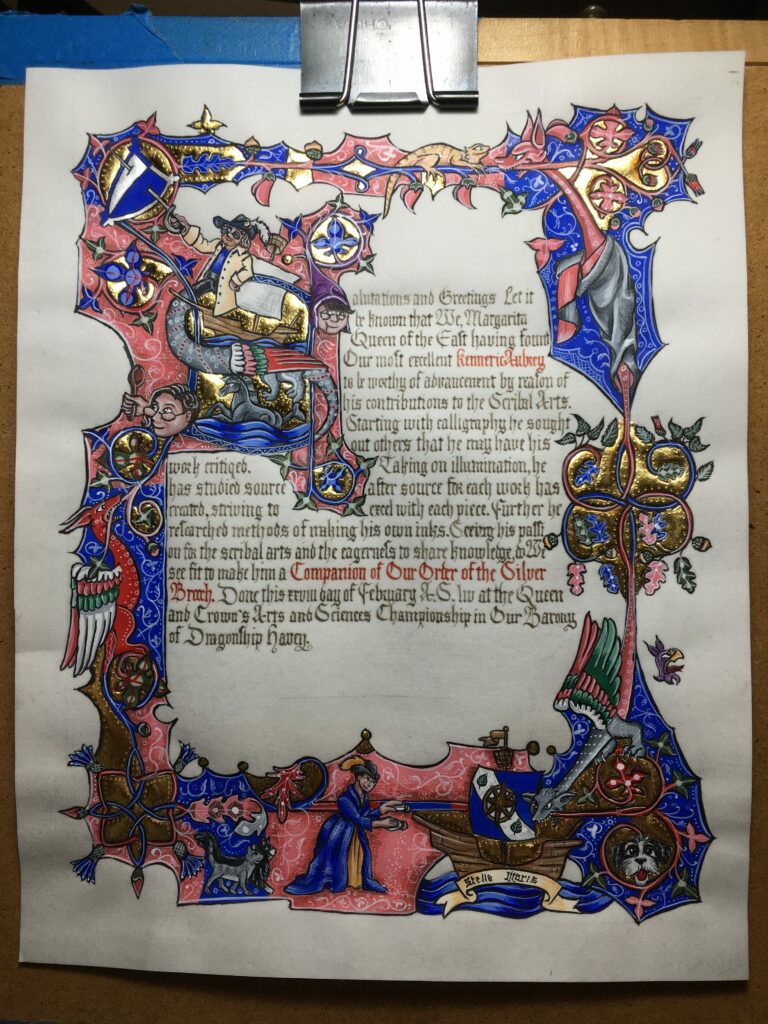 alutations and Greetings Let it
be known that We, Margarita
Queen of the East having found
Our most excellent Kenneric Aubrey
to be worthy of advancement by reason of
his contributions to the Scribal Arts.
Starting with calligraphy he sought
out others that he may have his
work critiqed. Taking on illumination, he
has studied source after source for each work has
created, striving to excel with each piece. Further he
researched methods of making his own inks. Seeing his passi
on for the scribal arts and the eagerness to share knowledge, do We
see fit to make him a Companion of Our Order of the Silver
Brooch. Done this xxviii day of February A.S. liv at the Queen
and Crown's Arts and Sciences Championship in Our Barony
of Dragonship Haven.
Stella Maris